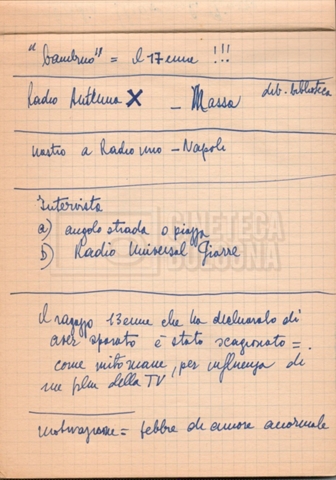 "bambino" = il 17enne !!!
Radio Antenna X – Massa dib. biblioteca
nastro a Radio uno – Napoli
Intervista
a) angolo strada o piazza
b) Radio Universal Giarre
CINETECA
BOLOGNA
Il ragazzo 13enne che ha dichiarato di
aver sparato è stato scagionato =
come mitomane, per influenza di
un film della TV
motivazione = febbre di amore anormale